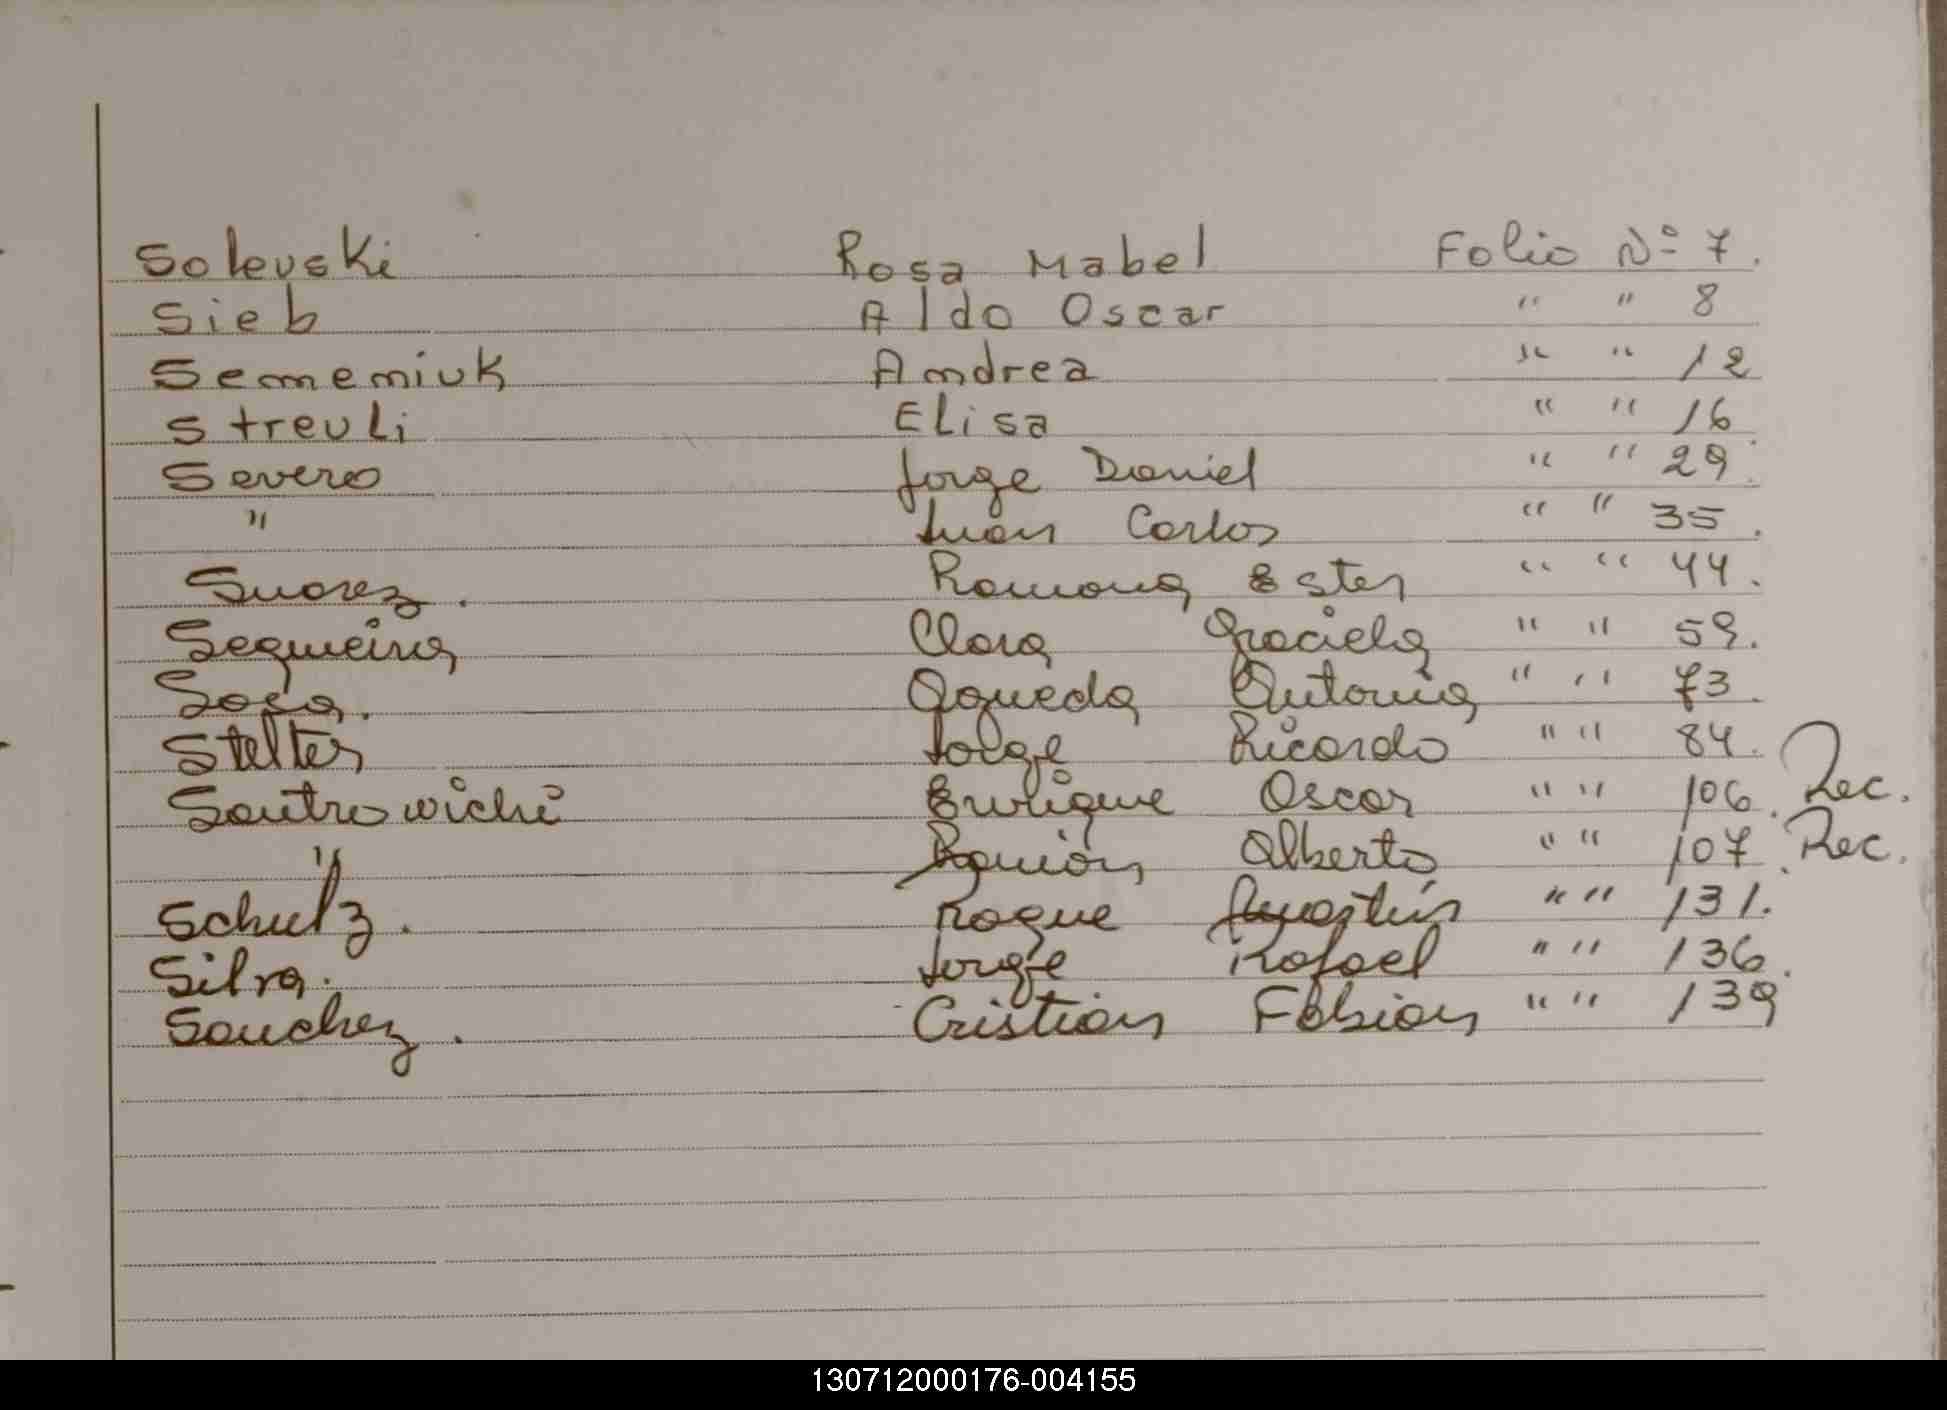 Solevski Rosa Mabel Folio Nº 7.
Sieb Aldo Oscar " " 8
Semeniuk Andrea " " 12
Streuli Elisa " " 16
Severo Jorge Daniel " " 29.
" Juan Carlos " " 35.
Suarez. Ramona Ester " " 44.
Sequeira Clara Graciela " " 59.
Sosa. Agueda Antonia " " 73.
Stelter Jorge Ricardo " " 84.
Santrowichi Enrique Oscar " " 106. Rec.
" Ramón Alberto " " 107. Rec.
Schulz. Roque Agustín " " 131.
Silva. Jorge Rafael " " 136.
Sanchez. Cristian Fabian " " 139
130712000176-004155